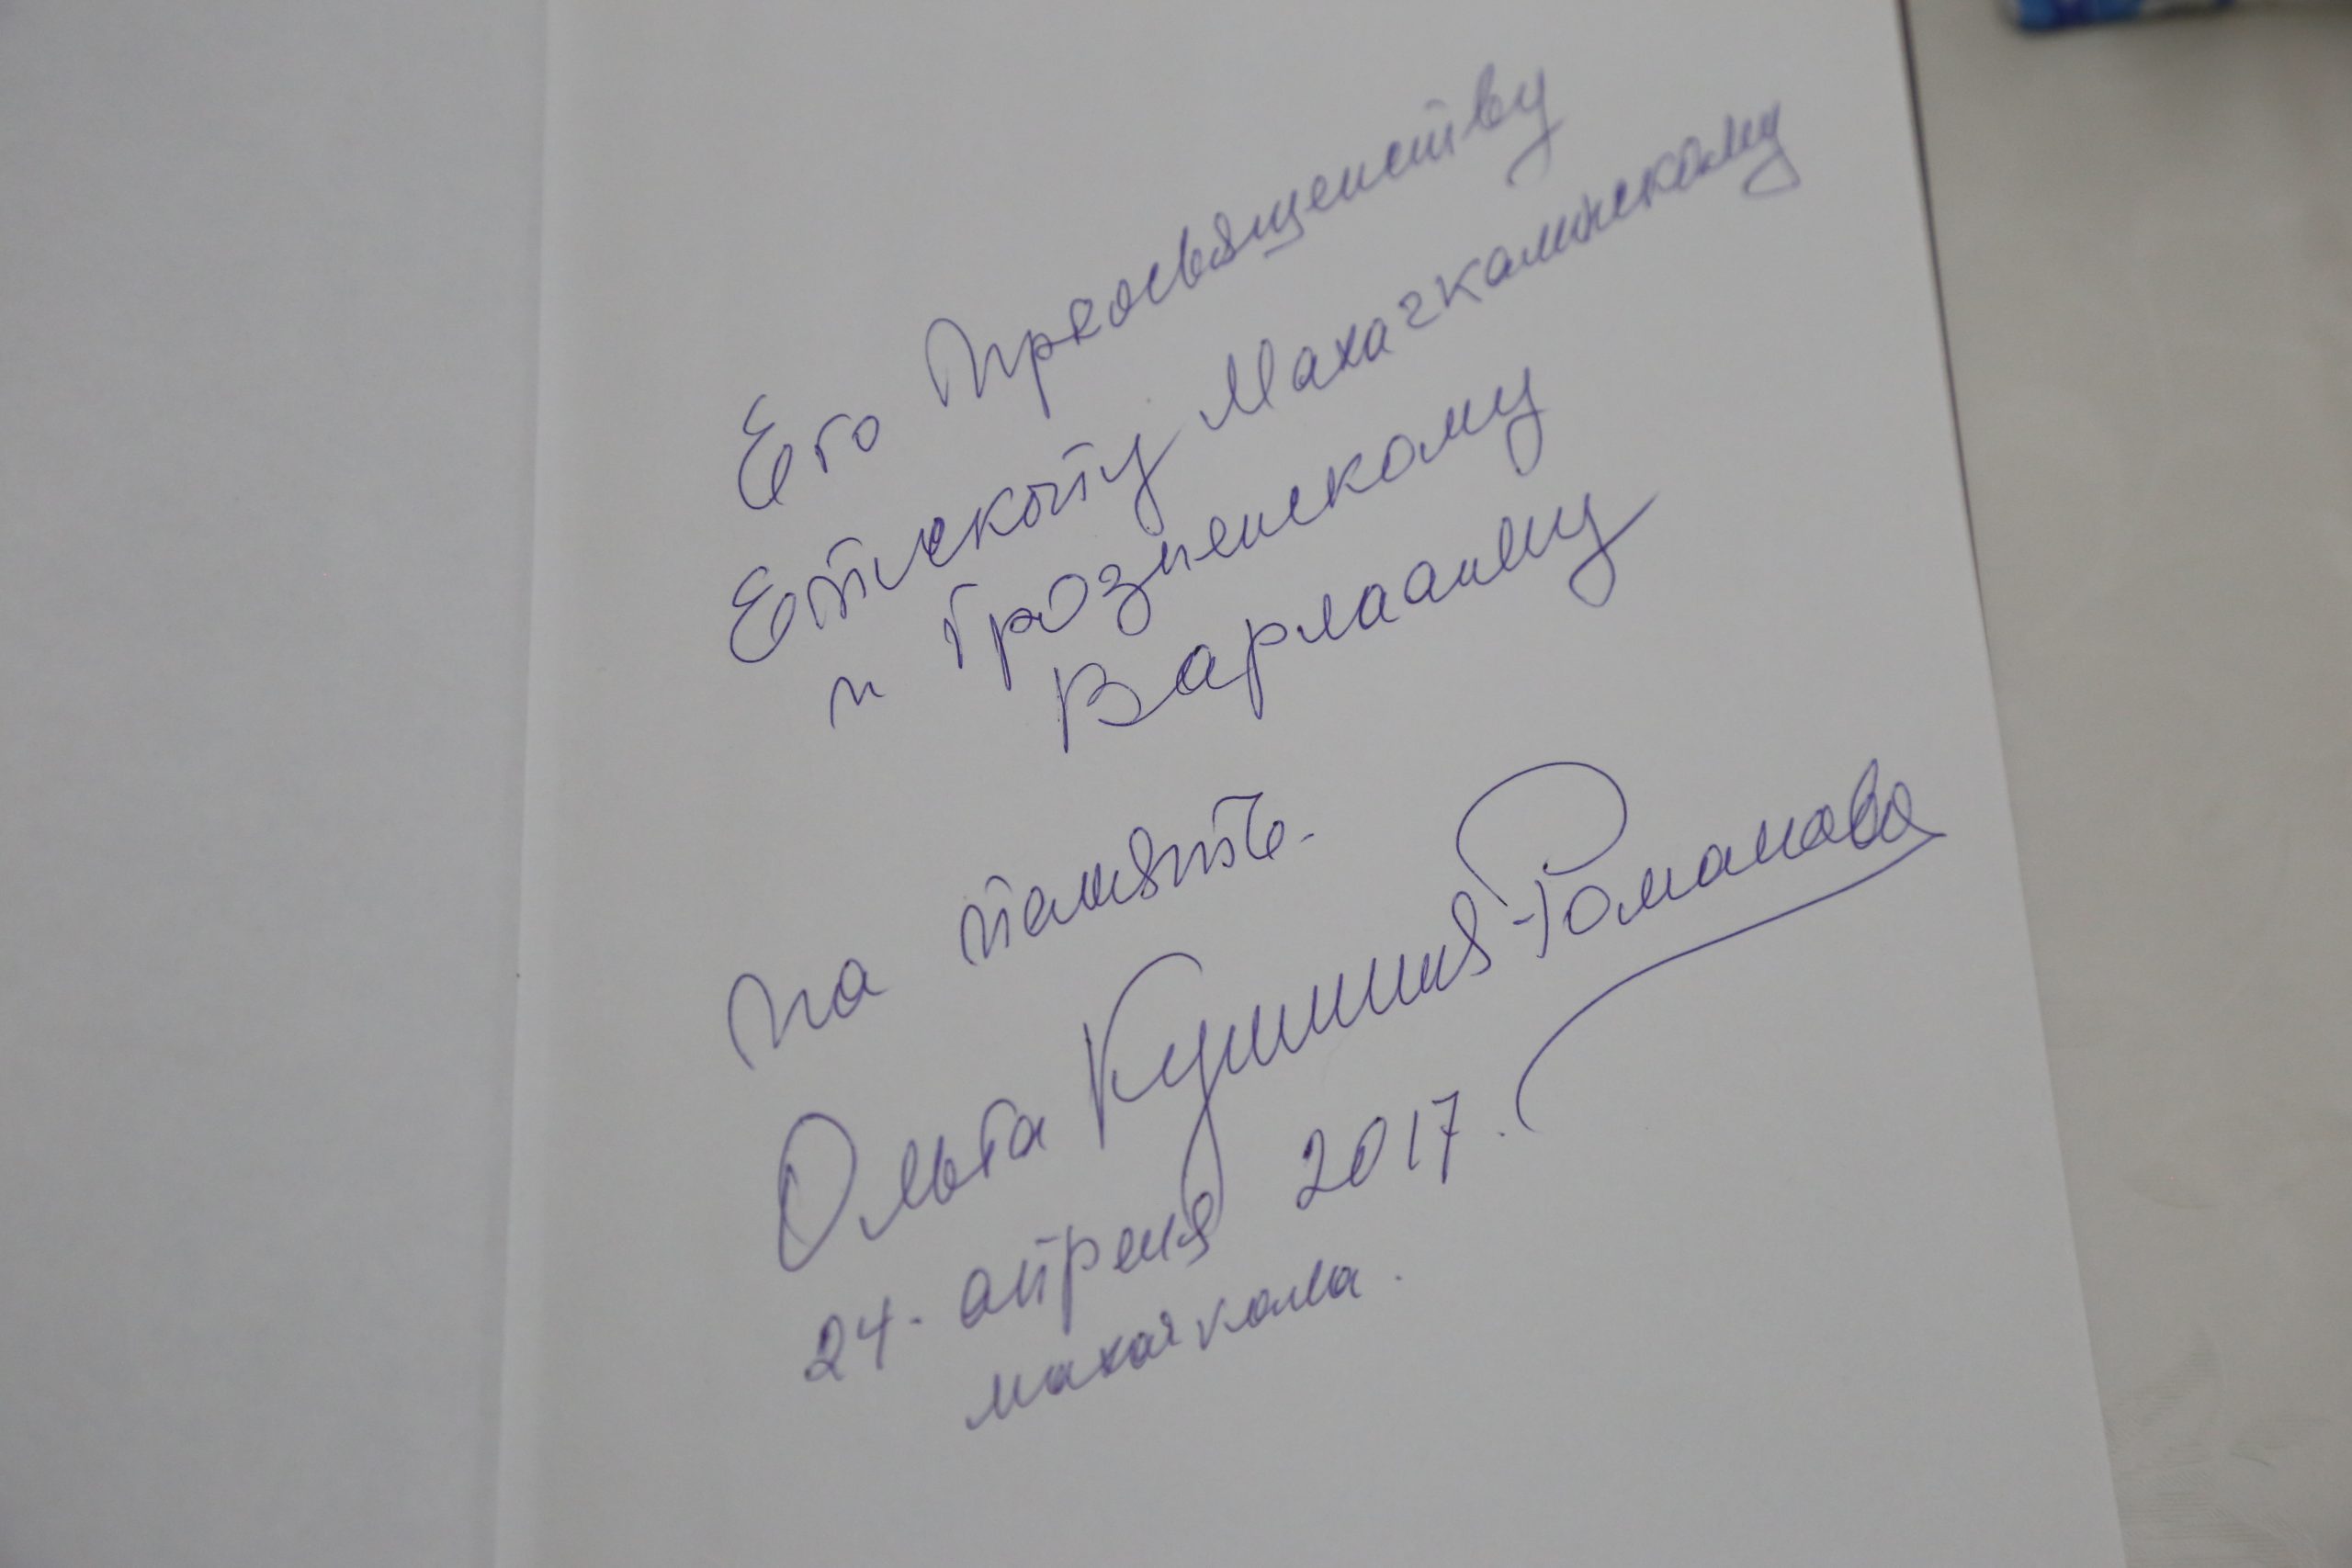 Его Преосвященству
Епископу Махачкалинскому
и Грозненскому
Варлааму
на память.
Ольга Куликовская-Романова
24. апреля 2017.
махачкала.